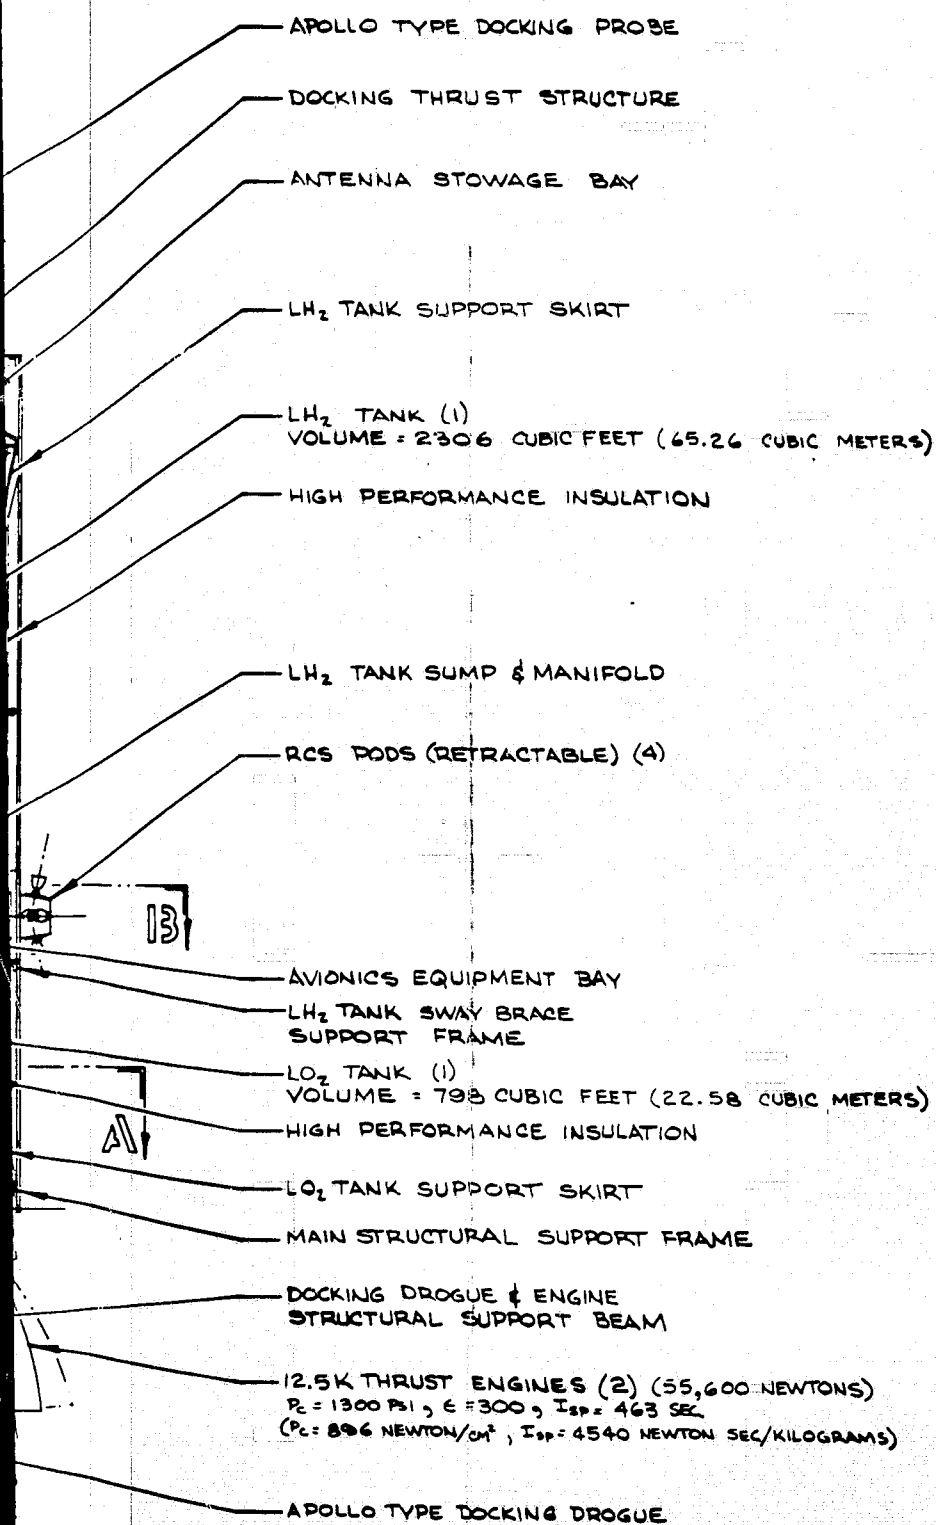 APOLLO TYPE DOCKING PROBE
DOCKING THRUST STRUCTURE
ANTENNA STOWAGE BAY
LH₂ TANK SUPPORT SKIRT
LH₂ TANK (1)
VOLUME = 2306 CUBIC FEET (65.26 CUBIC METERS)
HIGH PERFORMANCE INSULATION
LH₂ TANK SUMP & MANIFOLD
RCS PODS (RETRACTABLE) (4)
B
AVIONICS EQUIPMENT BAY
LH₂ TANK SWAY BRACE
SUPPORT FRAME
LO₂ TANK (1)
VOLUME = 798 CUBIC FEET (22.58 CUBIC METERS)
A
HIGH PERFORMANCE INSULATION
LO₂ TANK SUPPORT SKIRT
MAIN STRUCTURAL SUPPORT FRAME
DOCKING DROGUE & ENGINE
STRUCTURAL SUPPORT BEAM
12.5K THRUST ENGINES (2) (55,600 NEWTONS)
Pc = 1300 PSI, ε = 300, Isp = 463 SEC
(Pc = 896 NEWTON/cm², Isp = 4540 NEWTON SEC/KILOGRAMS)
APOLLO TYPE DOCKING DROGUE